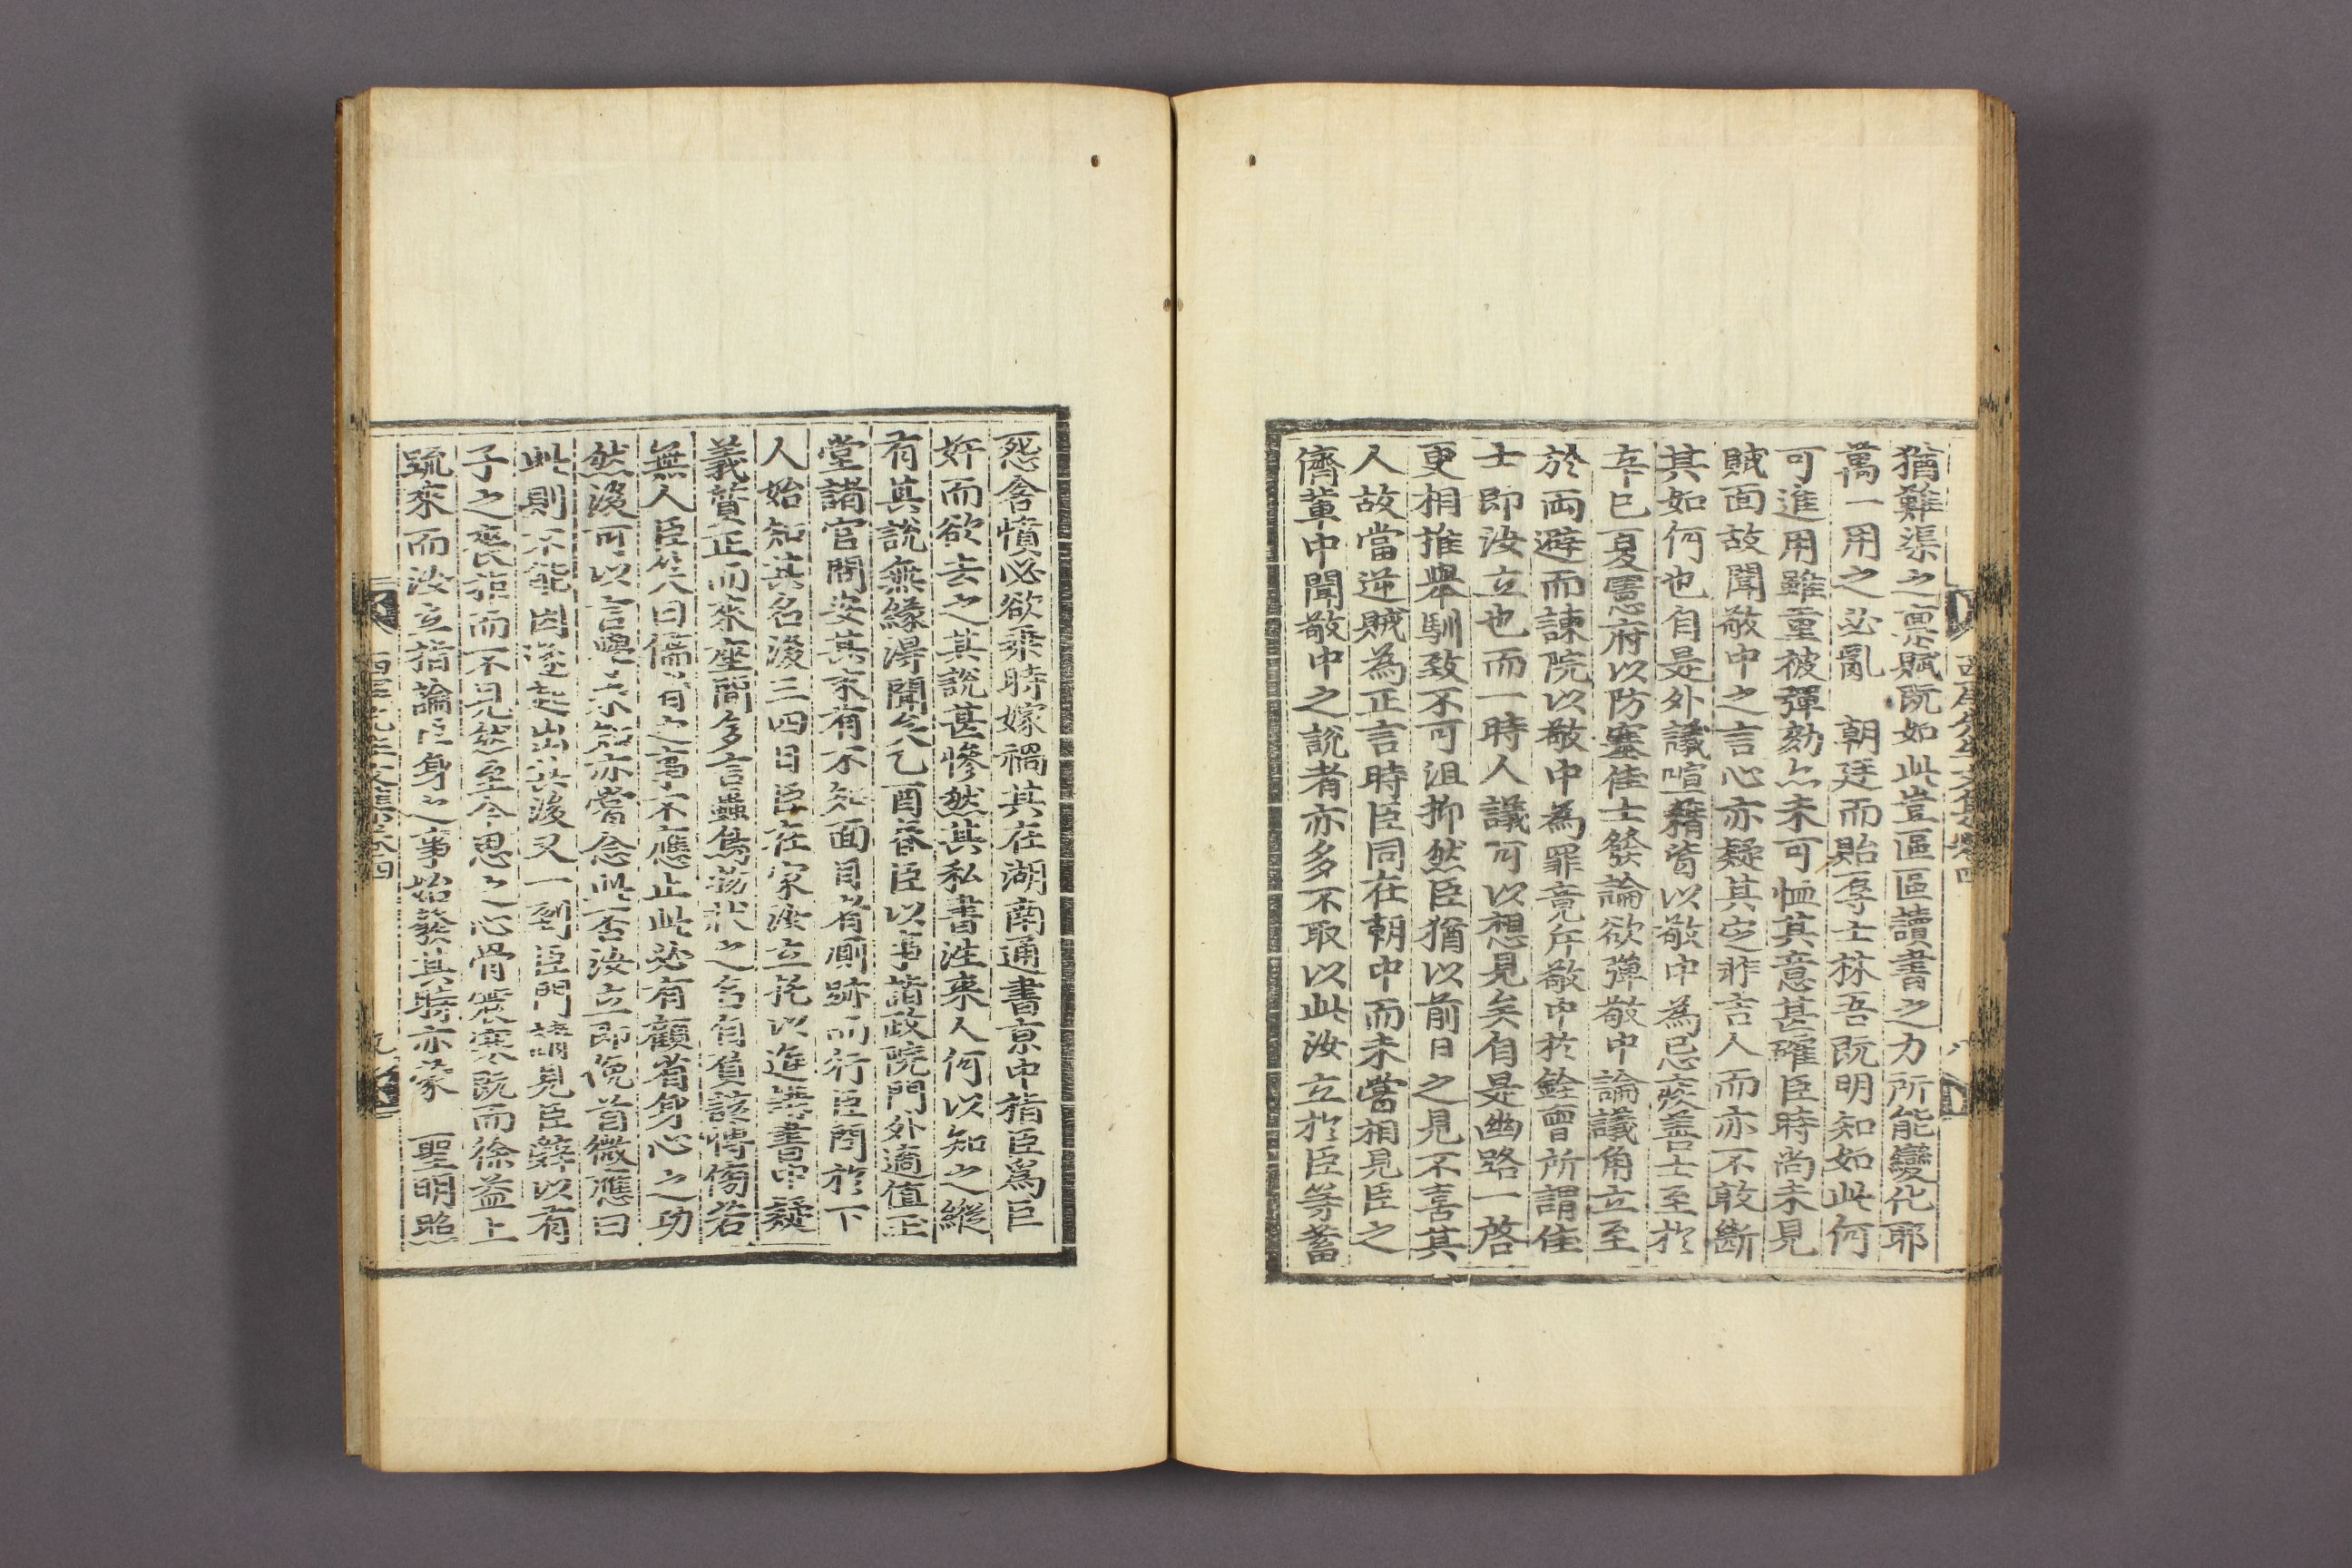 猶難渠之稟賦旣如此豈區區讀書之力所能變化耶
萬一用之必亂　朝廷而貽辱士林吾旣明知如此何
可進用雖重被彈劾亦未可恤其意甚確臣時尚未見
賊面故聞敬中之言心亦疑其定非言人而亦不敢斷
其如何也自是外議喧藉皆以敬中爲忌疾善士至於
辛巳夏憲府以防塞佳士發論欲彈敬中論議角立至
於兩避而諫院以敬中爲罪竟斥敬中於銓曹所謂佳
士卽汝立也而一時人議可以想見矣自是幽路一啓
更相推舉馴致不可沮抑然臣猶以前日之見不喜其
人故當逆賊爲正言時臣同在朝中而未嘗相見臣之
儕輩中聞敬中之說者亦多不取以此汝立於臣等蓄
怨含憤必欲乘時嫁禍其在湖南通書京中指臣爲巨
奸而欲去之其說甚慘然其私書往來人何以知之縱
有其說無緣得聞矣乙酉春臣以事詣政院門外適值玉
堂諸官問安其家有不知面目者廁跡而行臣問於下
人始知其名後三四日臣在家汝立托以進講書中疑
義質正而來座間多言蟲篤
狀之
無人臣
曰儒
之事不應止此必有顧省身心之功
然後可以言學
亦嘗念此否汝立卽俛首微應曰
此則不能因遂起出其後又一到臣門請見臣辭以有
子之喪
而不見然至今思之心骨震寒旣而徐益上
疏來而汝立指論臣身之事始發其時亦蒙　聖明照
西厓先生文集卷四
西厓先生文集卷四